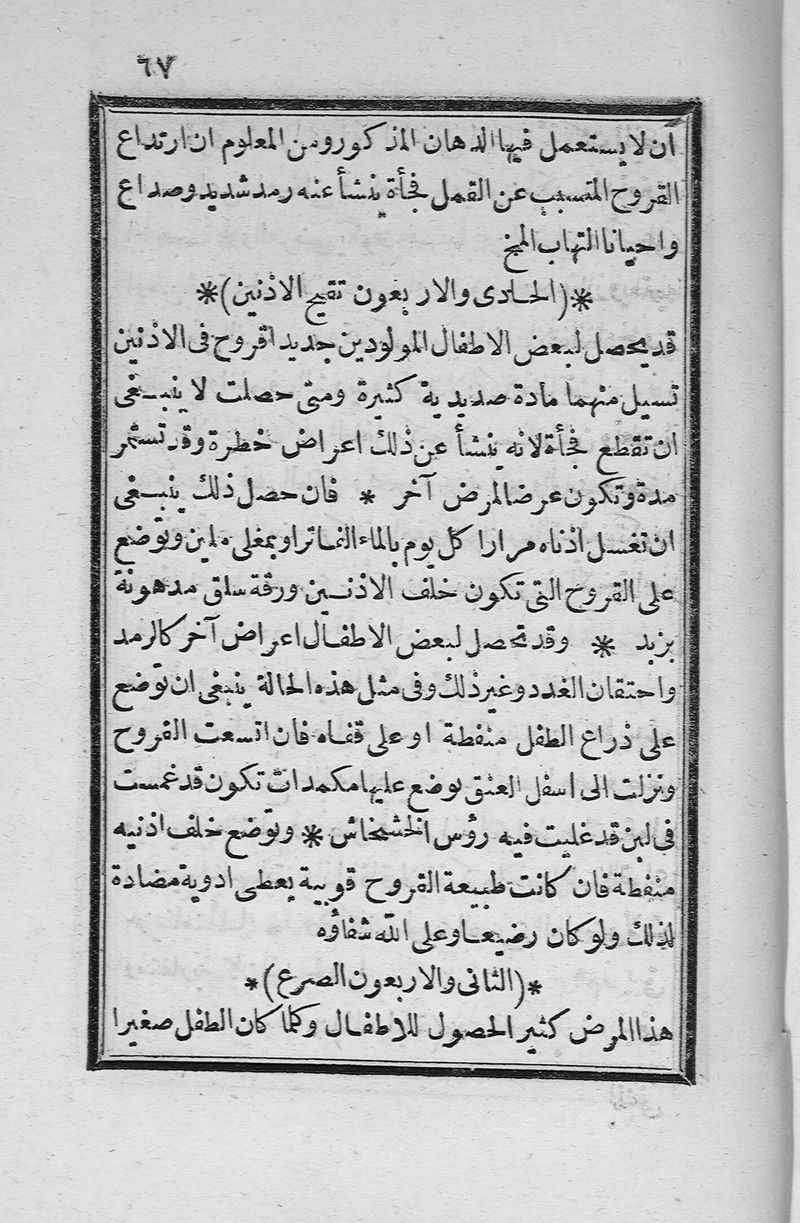 ٦٧
ان لا يستعمل فيها الدهان المذكور ومن المعلوم ان ارتداع
القروح المتسبب عن القمل فجأة ينشأ عنه رمد شديد وصداع
واحيانا التهاب المخ
*(الحادى والاربعون تقيح الاذنين)*
قد يحصل لبعض الاطفال المولودين جديدا قروح فى الاذنين
تسيل منهما مادة صديدية كثيرة ومتى حصلت لا ينبغى
ان تقطع فجأة لانه ينشأ عن ذلك اعراض خطرة وقد تستمر
مدة وتكون عرضا لمرض آخر * فان حصل ذلك ينبغى
ان تغسل اذناه مرارا كل يوم بالماء الفاتر او بمغلى ملين وتوضع
على القروح التى تكون خلف الاذنين ورقة سلق مدهونة
بزبد * وقد تحصل لبعض الاطفال اعراض آخر كالرمد
واحتقان الغدد وغير ذلك وفى مثل هذه الحالة ينبغى ان توضع
على ذراع الطفل منفطة او على قفاه فان اتسعت القروح
ونزلت الى اسفل العنق يوضع عليها مكمدات تكون قد غمست
فى لبن قد غليت فيه رؤس الخشخاش * وتوضع خلف اذنيه
منفطة فان كانت طبيعة القروح قوبية يعطى ادوية مضادة
لذلك ولو كان رضيعا وعلى الله شفاؤه
*(الثانى والاربعون الصرع)*
هذا المرض كثير الحصول للاطفال وكلما كان الطفل صغيرا